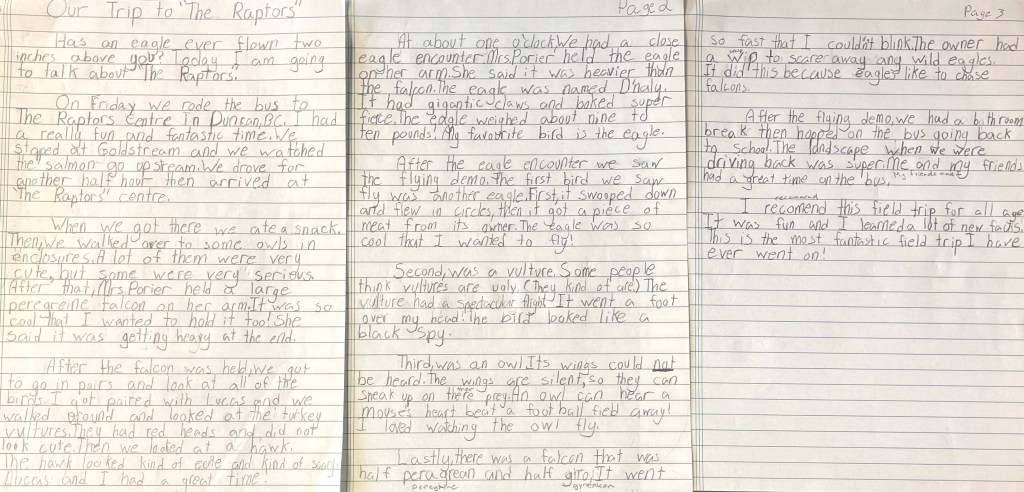 Our Trip to "The Raptors"
Has an eagle ever flown two
inches above you? Today I am going
to talk about "The Raptors".
On Friday we rode the bus to
The Raptors Centre in Duncan, BC. I had
a really fun and fantastic time. We
stoped at Goldstream and we watched
the salmon go upstream. We drove for
another half hour then arrived at
"The Raptors" centre.
When we got there we ate a snack.
Then, we walked over to some owls in
enclosures. A lot of them were very
cute, but some were very serious.
After that, Mrs. Porier held a large
peregreine falcon on her arm. It was so
cool that I wanted to hold it too! She
said it was getting heavy at the end.
After the falcon was held, we got
to go in pairs and look at all of the
birds. I got paired with Lucas and we
walked around and looked at the turkey
vultures. They had red heads and did not
look cute. Then we looked at a hawk.
The hawk looked kind of cute and kind of scary.
Lucas and I had a great time.
Page 2
At about one o'clock We had a close
eagle encounter. Mrs. Porier held the eagle
on her arm. She said it was heavier than
the falcon. The eagle was named D'naly.
It had gigantic claws and looked super
fierce. The eagle weighed about nine to
ten pounds! My favourite bird is the eagle.
After the eagle encounter we saw
the flying demo. The first bird we saw
fly was another eagle. First, it swooped down
and flew in circles, then it got a piece of
meat from its owner. The eagle was so
cool that I wanted to fly!
Second, was a vulture. Some people
think vultures are ugly. (They kind of are.) The
vulture had a spectacular flight. It went a foot
over my head! The bird looked like a
black spy.
Third, was an owl. Its wings could not
be heard. The wings are silent, so they can
sneak up on there prey. An owl can hear a
mouse's heart beat a football field away!
I loved watching the owl fly.
Lastly, there was a falcon that was
half peragrean and half giro. It went
peregrine gyrofalcon
Page 3
so fast that I couldn't blink. The owner had
a wip to scare away any wild eagles.
It did this because eagles like to chase
falcons.
After the flying demo, we had a bathroom
break then hopped on the bus going back
to school. The landscape when we were
driving back was super. Me and my friends
had a great time on the bus. My friends and I
recommend
I recomend this field trip for all ages
It was fun and I learned a lot of new facts.
This is the most fantastic field trip I have
ever went on!